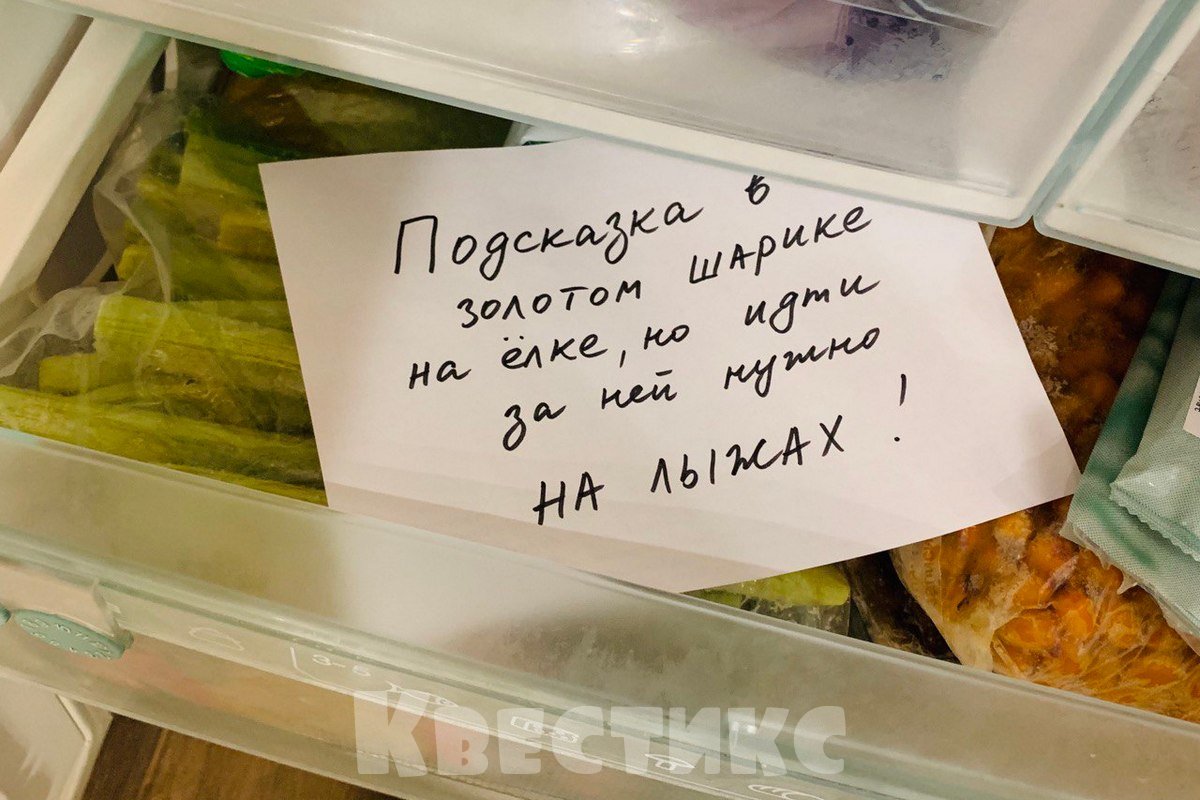 Подсказка в
золотом шарике
на ёлке, но идти
за ней нужно
НА ЛЫЖАХ !
3-5
Квестикс